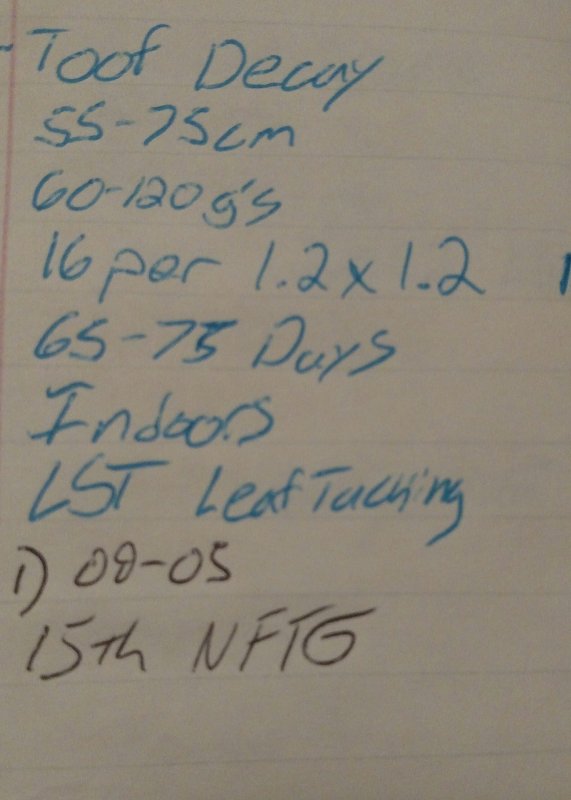 Toof Decay
55-75cm
60-120g's
16 per 1.2x1.2
65-75 Days
Indoors
LST Leaf Tucking
1) 08-05
15th NFTG